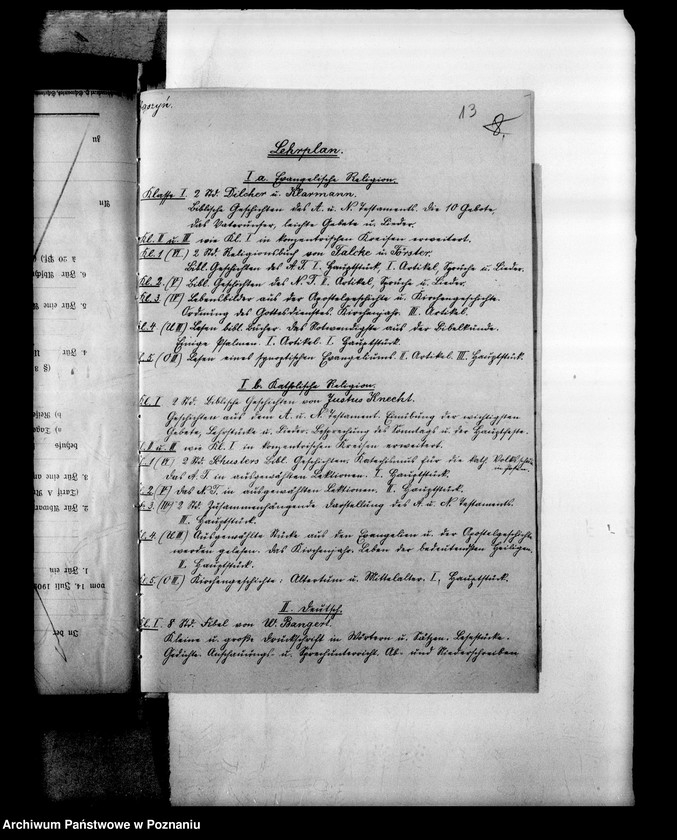 gozyń.
13
8.
Lehrplan.
I a. Evangelische Religion.
Klasse I. 2 Std. Dilcher u. Klarmann.
Biblische Geschichten des A. u. N. Testaments. Die 10 Gebote,
das Vaterunser, leichte Gebete u. Lieder.
Kl. II u. III wie Kl. I in konzentrischen Kreisen erweitert.
Kl. 1 (VI.) 2 Std. Religionsbuch von Falcke u. Förster.
Bibl. Geschichten des A. T. I. Hauptstück, I. Artikel, Sprüche u. Lieder.
Kl. 2. (V) Bibl. Geschichten des N. T. II. Artikel, Sprüche u. Lieder.
Kl. 3. (IV) Lebensbilder aus der Apostelgeschichte u. Kirchengeschichte.
Ordnung des Gottesdienstes. Kirchenjahr. III. Artikel.
Kl. 4. (U III) Lesen bibl. Bücher. Das Notwendigste aus der Bibelkunde.
Einige Psalmen. I. Artikel. I. Hauptstück.
l. 5 (O III) Lesen eines synoptischen Evangeliums. II. Artikel. III. Hauptstück.
I b. Katholische Religion.
Kl. I 2 Std. Biblische Geschichten von Justus Knecht.
Geschichten aus dem A. u. N. Testament. Einübung der wichtigsten
Gebete, Lehrstücke u. Lieder. Besprechung des Sonntags u. der Hauptfeste.
l. II u. III wie Kl. I in konzentrischen Kreisen erweitert.
l. 1 (VI.) 2 Std. Schusters Bibl. Geschichten. Katechismus für die kath. Volksschule
Das A. T. in ausgewählten Lektionen. I. Hauptstück.
l. 2. (V) Das N. T. in ausgewählten Lektionen. II. Hauptstück.
l. 3. (IV) 2 Std. Zusammenhängende Darstellung des A. u. N. Testaments.
III. Hauptstück.
l. 4. (U III) Ausgewählte Stücke aus den Evangelien u. der Apostelgeschichte
werden gelesen. Das Kirchenjahr. Leben der bedeutendsten Heiligen.
II. Hauptstück.
l. 5. (O III.) Kirchengeschichte: Altertum u. Mittelalter. I. Hauptstück.
II. Deutsch.
Kl. I. 8 Std. Fibel von W. Bangert.
Kleine u. große Druckschrift in Wörtern u. Sätzen. Lesestücke.
Gedichte. Anschauungs- u. Sprechunterricht. Ab- und Niederschreiben
Archiwum Państwowe w Poznaniu